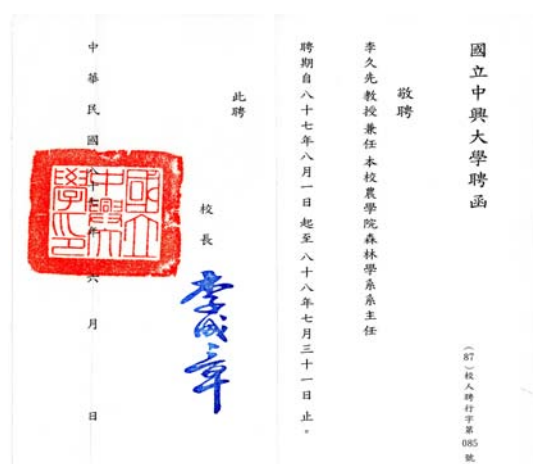 國立中興大學聘函
(87)校人聘行字第085號
敬聘
李久先教授兼任本校農學院森林學系系主任
聘期自八十七年八月一日起至八十八年七月三十一日止。
此聘
校長 李成章
中華民國八十七年六月日
國立中興大學印